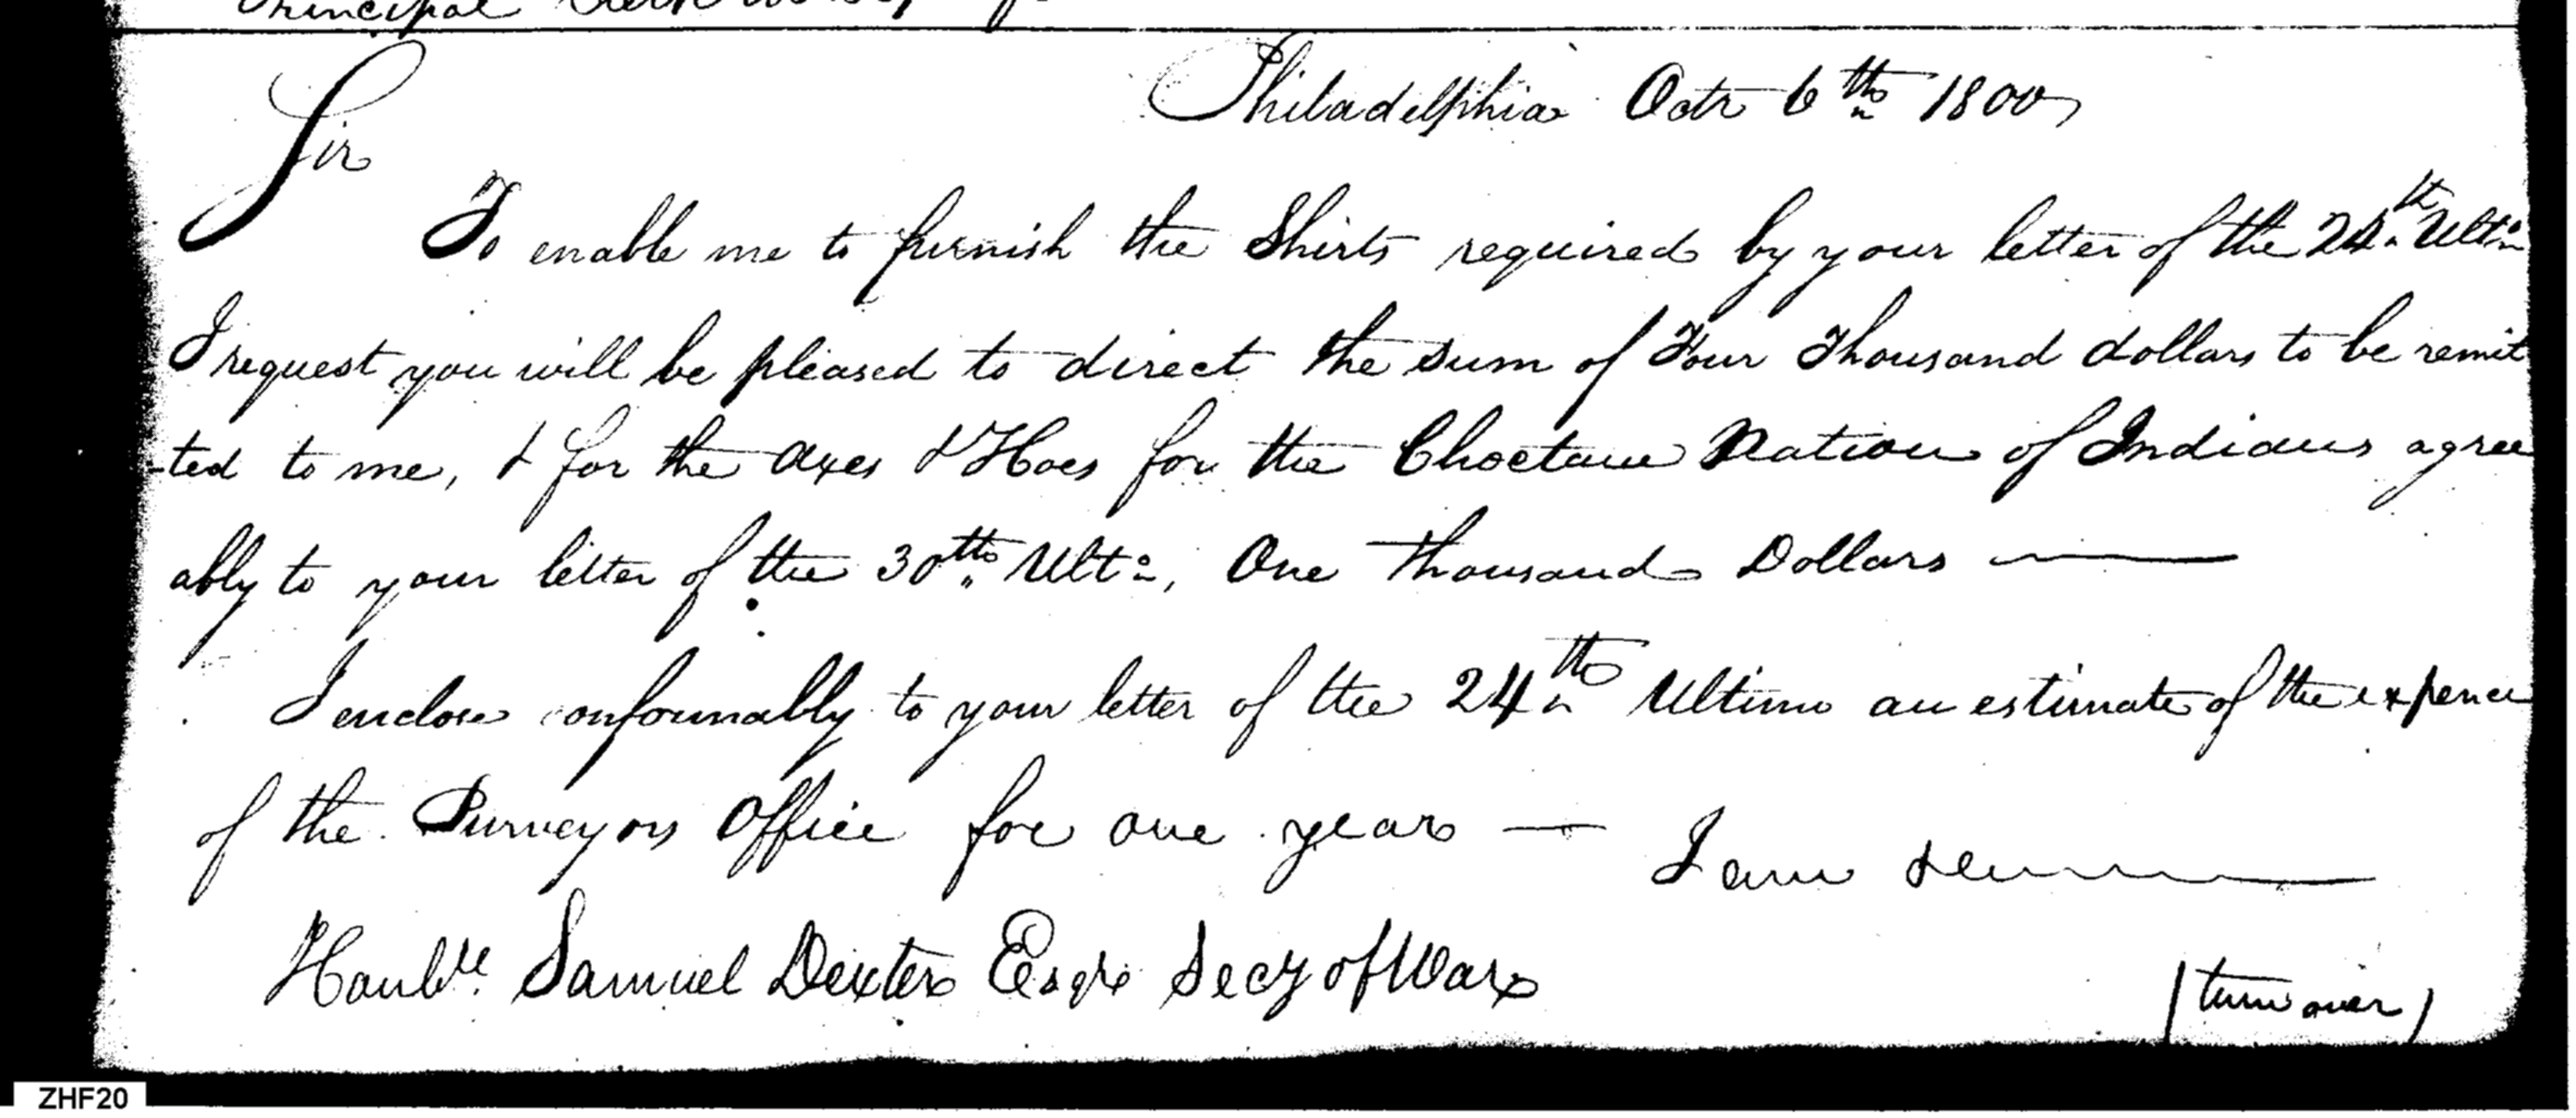 Principal Clerk
Philadelphia Octr 6th 1800
Sir
To enable me to furnish the Shirts required by your letter of the 24th Ulto
I request you will be pleased to direct the sum of Four Thousand dollars to be remit
-ted to me, & for the Axes & Hoes for the Choctaw Nation of Indians agree
ably to your letter of the 30th Ulto, One Thousand Dollars
I enclose conformably to your letter of the 24th Ultimo an estimate of the expence
of the Purveyors Office for one year — I am &c
Honble Samuel Dexter Esqre Secy of War
(turn over)
ZHF20